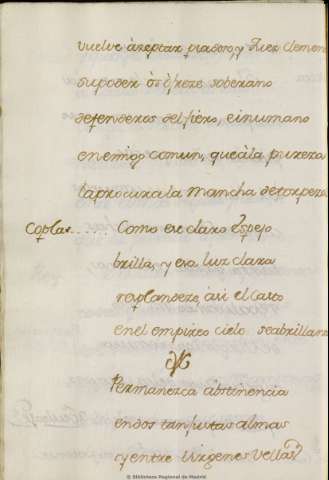 vuelve àzeptar piadoso, y Juez Clemen
supoder òs ofreze soberano
defenderos del fiero, e inumano
enemigo comun, que à la pureza
la procura la mancha de torpeza
Coplas..... Como ese claro Espejo
brilla, y esa luz clara
resplandeze, àsi el Casto
en el empireo cielo se abrillanta
Permanezca abstinencia
en dos tan justas almas
y entre Virgenes Vellas
© Biblioteca Regional de Madrid